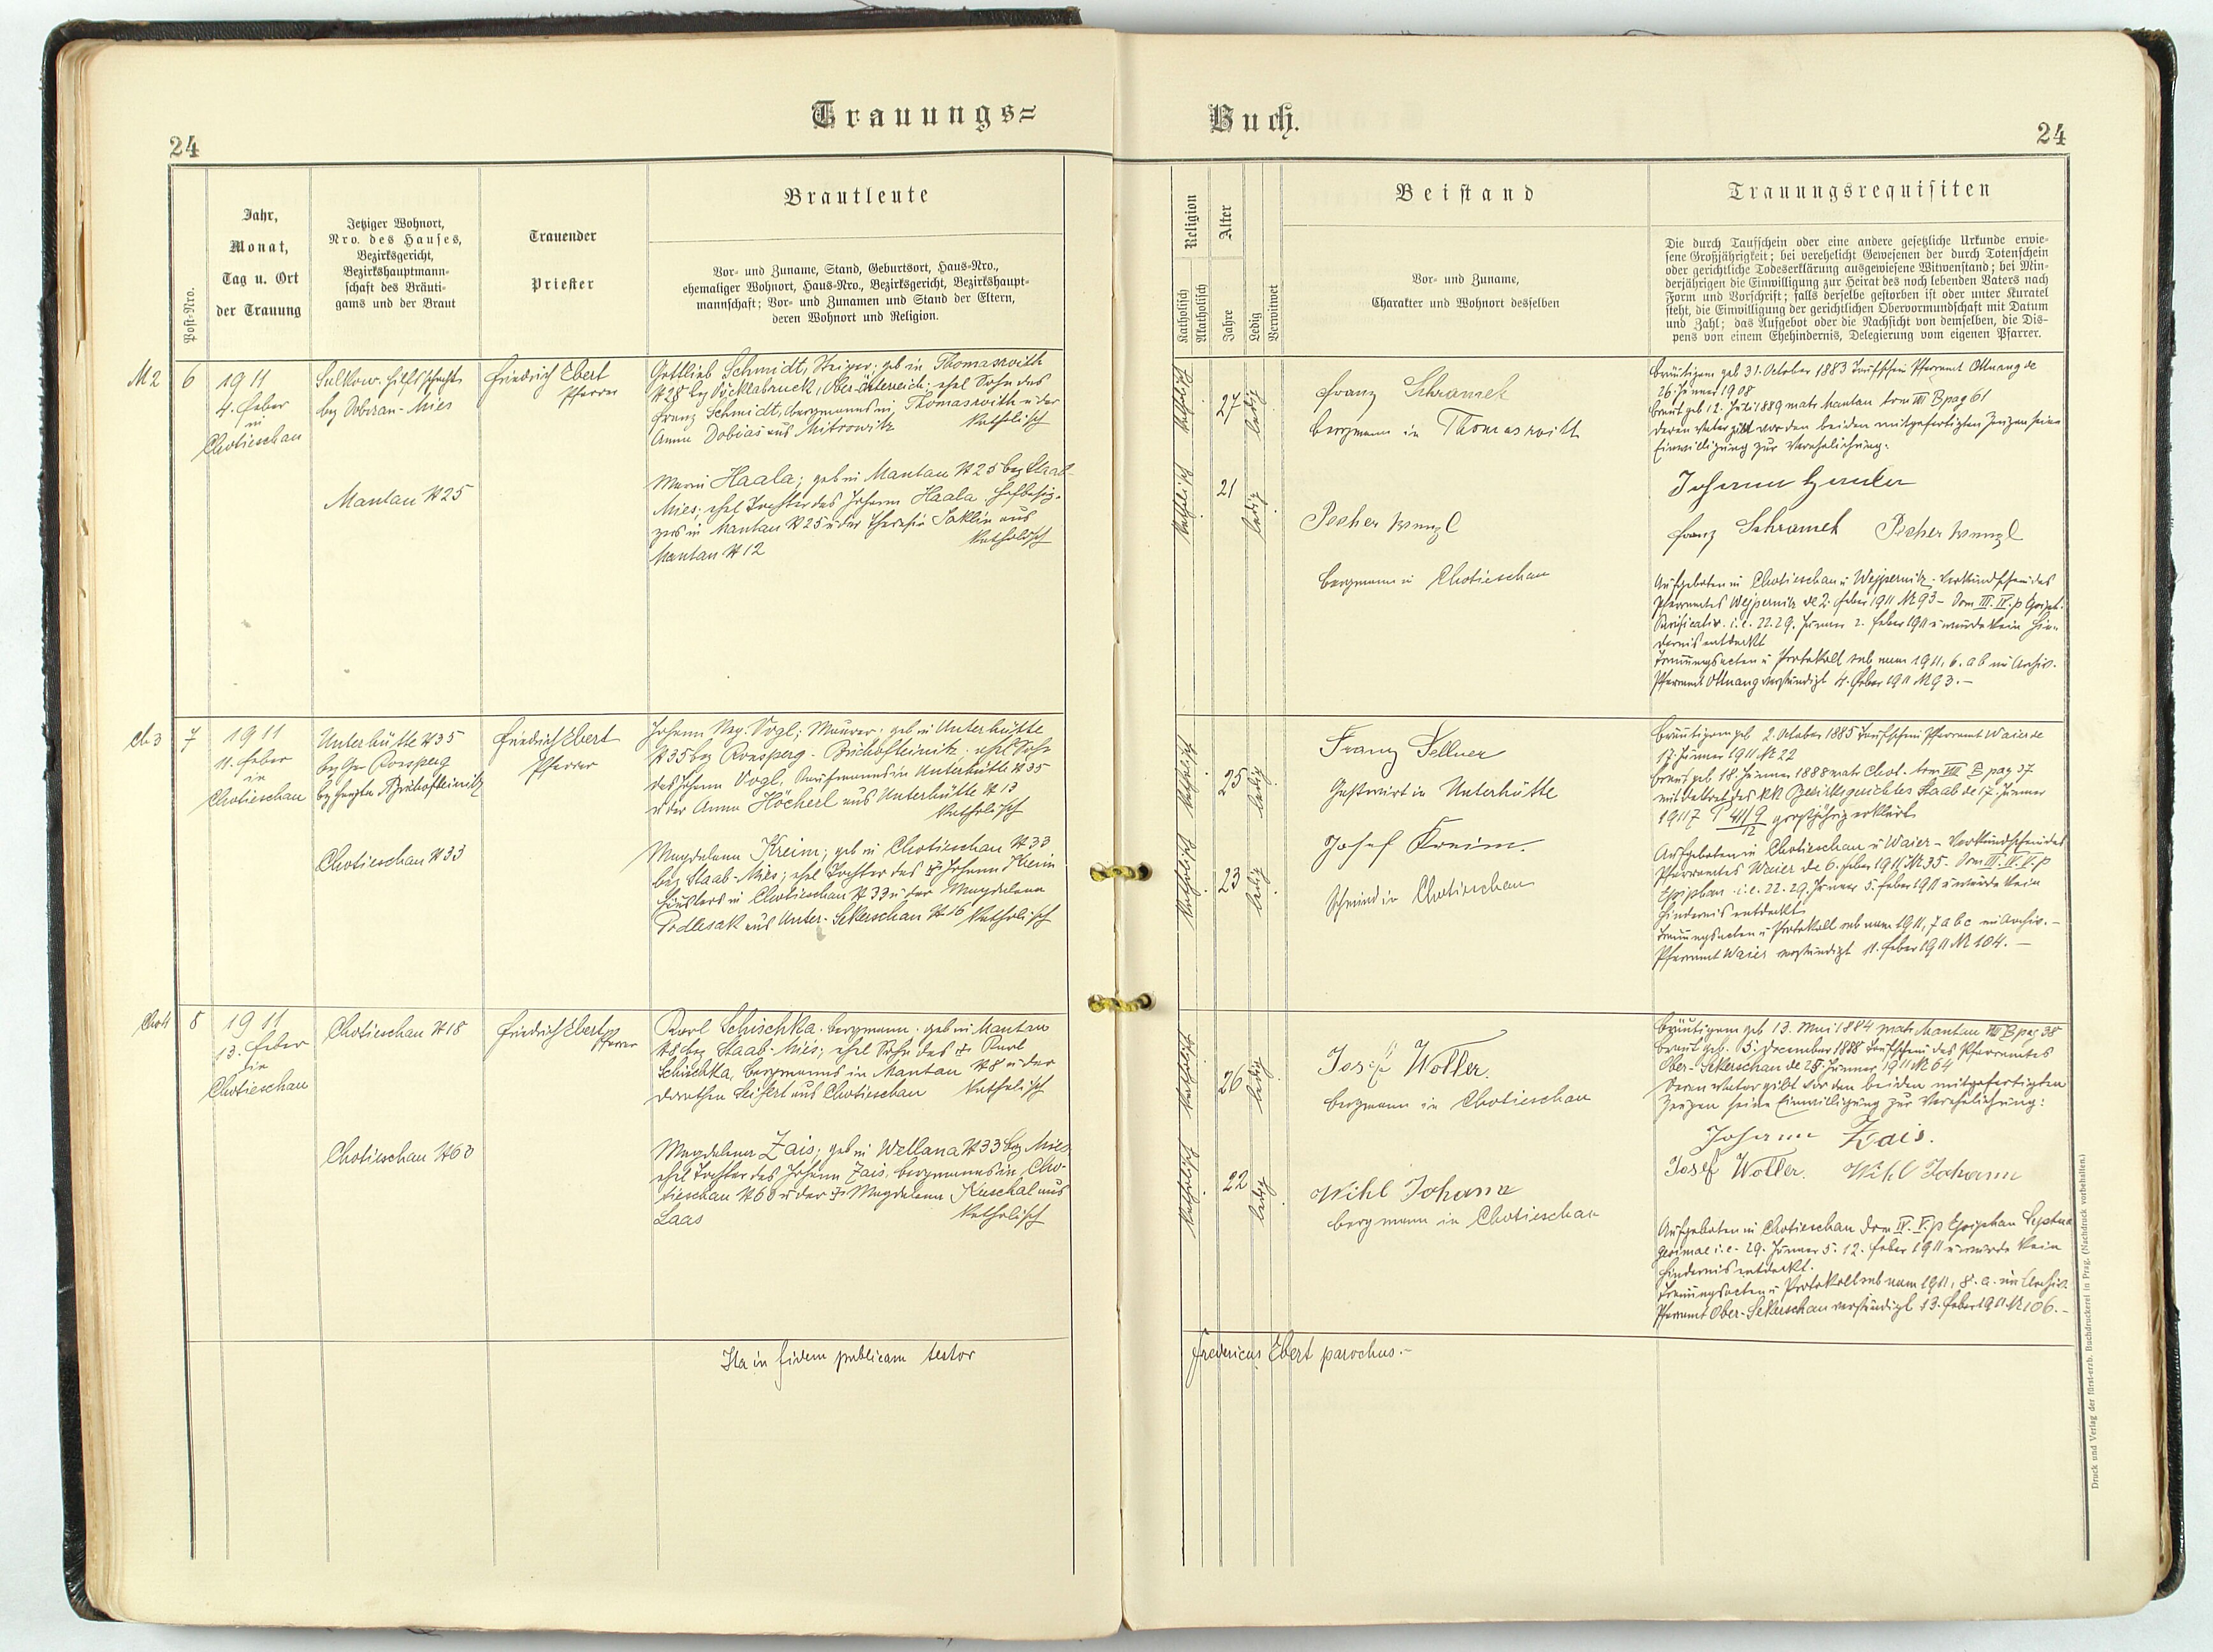 Trauungs=
Buch.
24
24
Post-Nro.
Jahr,
Monat,
Tag u. Ort
der Trauung
Jetziger Wohnort,
Nro. des Hauses,
Bezirksgericht,
Bezirkshauptmann-
schaft des Bräuti-
gams und der Braut
Trauender
Priester
Brautleute
Vor- und Zuname, Stand, Geburtsort, Haus-Nro.,
ehemaliger Wohnort, Haus-Nro., Bezirksgericht, Bezirkshaupt-
mannschaft; Vor- und Zunamen und Stand der Eltern,
deren Wohnort und Religion.
Religion
Katholisch
Akatholisch
Alter
Jahre
Ledig
Verwitwet
Beistand
Vor- und Zuname,
Charakter und Wohnort desselben
Trauungsrequisiten
Die durch Taufschein oder eine andere gesetzliche Urkunde erwie-
sene Großjährigkeit; bei verehelicht Gewesenen der durch Totenschein
oder gerichtliche Todeserklärung ausgewiesene Witwenstand; bei Min-
derjährigen die Einwilligung zur Heirat des noch lebenden Vaters nach
Form und Vorschrift; falls derselbe gestorben ist oder unter Kuratel
steht, die Einwilligung der gerichtlichen Obervormundschaft mit Datum
und Zahl; das Aufgebot oder die Nachsicht von demselben, die Dis-
pens von einem Ehehindernis, Delegierung vom eigenen Pfarrer.
M 2
6
1911
4. Feber
in
Chotieschau
Sulkow. Hilfsschacht
bez Dobrzan-Mies
Mantau N 25
Friedrich Ebert
Pfarrer
Gottlieb Schmidt, Steiger; geb in Thomasroith
N 28 bez Vöcklabruck, Ober-Österreich; ehel Sohn des
Franz Schmidt, Bergmanns in Thomasroith u der
Anna Dobias aus Mitrowitz Katholisch
Maria Haala; geb in Mantau N 25 bez Staab-
Mies; ehel Tochter des Johann Haala, Hofbesit-
zers in Mantau N 25 u der Theresia Saklin aus
Mantau N 12 Katholisch
katholisch
27
ledig
katholisch
21
ledig
Franz Schramek
Bergmann in Thomasroith
Pecher Wenzl
Bergmann in Chotieschau
Bräutigam geb 31. October 1883 Taufschein Pfarramt Ottnang de
26. Jänner 1908
Braut geb 12. Juli 1889 matr Mantau tom III B pag 61
deren Vater gibt vor den beiden mitgefertigten Zeugen seine
Einwilligung zur Verehelichung.
Franz Schramek Pecher Wenzl
Aufgeboten in Chotieschau u Wejpernitz. Verkündschein des
Pfarramtes Wejpernitz de 2. Feber 1911 N 93 - Dom III. IV. p Epiph.
Purificatio. i.e. 22. 29. Jänner 2. Feber 1911 u wurde kein Hin-
dernis entdeckt
Trauungsacten u Protokoll sub num 1911. 6. a b im Archiv.
Pfarramt Ottnang verständigt 4. Feber 1911 N 93. -
Ch 3
7
1911
11. Feber
in
Chotieschau
Unterhütte N 35
Ronsperg
Bischofteinitz
Chotieschau N 33
Friedrich Ebert
Pfarrer
Johann Vogl; Maurer; geb in Unterhütte
N 35 bez Ronsperg - Bischofteinitz; ehel Sohn
des Johann Vogl, Kaufmanns in Unterhütte N 35
u der Anna Höcherl aus Unterhütte N 13
Katholisch
Magdalena Kreim; geb in Chotieschau N 33
bez Staab-Mies; ehel Tochter des † Johann Kreim
Häuslers in Chotieschau N 33 u der Magdalena
Podlesak aus Unter-Sekerschan N 16 Katholisch
katholisch
25
ledig
katholisch
23
ledig
Franz Sellner
Gastwirt in Unterhütte
Josef Kreim.
Schmied in Chotieschau
Bräutigam geb 2. October 1885 Taufschein Pfarramt Waier de
17. Jänner 1911 N 22
Braut geb 18. Jänner 1888 matr Chot. tom VIII B pag 37
mit Dekret des kk Bezirksgerichtes Staab de 17. Jänner
1911 großjährig erklärt
Aufgeboten in Chotieschau u Waier - Verkündschein des
Pfarramtes Waier de 6. Feber 1911 N 35 - Dom III. IV. V. p
Epiphan. i.e. 22. 29. Jänner 5. Feber 1911 u wurde kein
Hindernis entdeckt
Trauungsacten u Protokoll sub num 1911, 7 a b c im Archiv. -
Pfarramt Waier verständigt 11. Feber 1911 N 104. -
Ch 4
8
1911
13. Feber
in
Chotieschau
Chotieschau N 18
Chotieschau N 60
Friedrich Ebert
Pfarrer
Karl Schischka. Bergmann. geb in Mantau
N 8 bez Staab-Mies; ehel Sohn des † Karl
Schischka, Bergmanns in Mantau N 8 u der
Dorothea Seifert aus Chotieschau Katholisch
Magdalena Zais; geb in Wellana N 33 bez Mies
ehel Tochter des Johann Zais, Bergmanns in Cho-
tieschau N 60 u der † Magdalena Kieschal aus
Laas Katholisch
katholisch
26
ledig
katholisch
22
ledig
Josef Woller.
Bergmann in Chotieschau
Wihl Johann
Bergmann in Chotieschau
Bräutigam geb 13. Mai 1884 matr Mantau VIII B pag 38
Braut geb. 5. December 1888 Taufschein des Pfarramtes
Ober-Sekerschan de 28. Jänner 1911 N 64
Deren Vater gibt vor den beiden mitgefertigten
Zeugen seine Einwilligung zur Verehelichung:
Johann Zais.
Josef Woller. Wihl Johann
Aufgeboten in Chotieschau Dom IV. V. p Epiphan Septua
gesimae i.e. 29. Jänner 5. 12. Feber 1911 u wurde kein
Hindernis entdeckt.
Trauungsacten u Protokoll sub num 1911, 8. a. im Archiv.
Pfarramt Ober-Sekerschan verständigt 13. Feber 1911 N 106. -
Ita in fidem publicam testor
Fredericus Ebert parochus. -
Druck und Verlag der fürst-erzb. Buchdruckerei in Prag. (Nachdruck vorbehalten.)